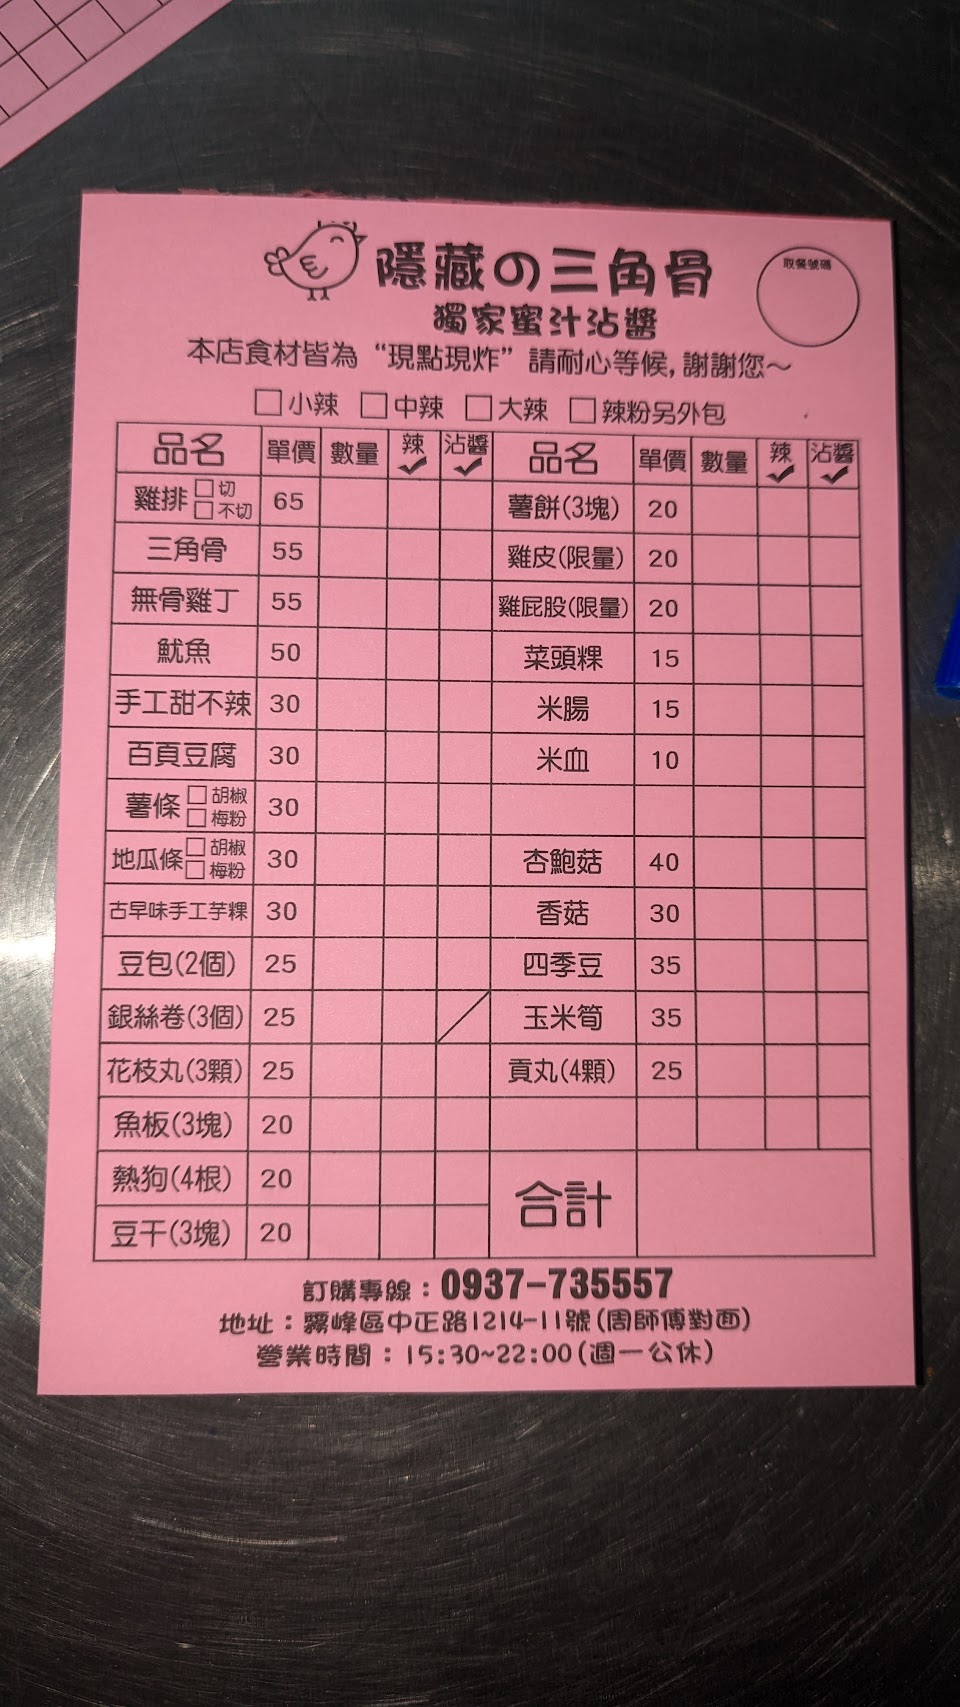 隱藏の三角骨
取餐號碼
獨家蜜汁沾醬
本店食材皆為“現點現炸”請耐心等候,謝謝您～
□小辣 □中辣 □大辣 □辣粉另外包
品名 單價 數量 辣✓ 沾醬✓ 品名 單價 數量 辣✓ 沾醬✓
雞排 □切 □不切 65 薯餅(3塊) 20
三角骨 55 雞皮(限量) 20
無骨雞丁 55 雞屁股(限量) 20
魷魚 50 菜頭粿 15
手工甜不辣 30 米腸 15
百頁豆腐 30 米血 10
薯條 □胡椒 □梅粉 30
地瓜條 □胡椒 □梅粉 30 杏鮑菇 40
古早味手工芋粿 30 香菇 30
豆包(2個) 25 四季豆 35
銀絲卷(3個) 25 玉米筍 35
花枝丸(3顆) 25 貢丸(4顆) 25
魚板(3塊) 20
熱狗(4根) 20 合計
豆干(3塊) 20
訂購專線：0937-735557
地址：霧峰區中正路1214-11號(周師傅對面)
營業時間：15:30~22:00(週一公休)